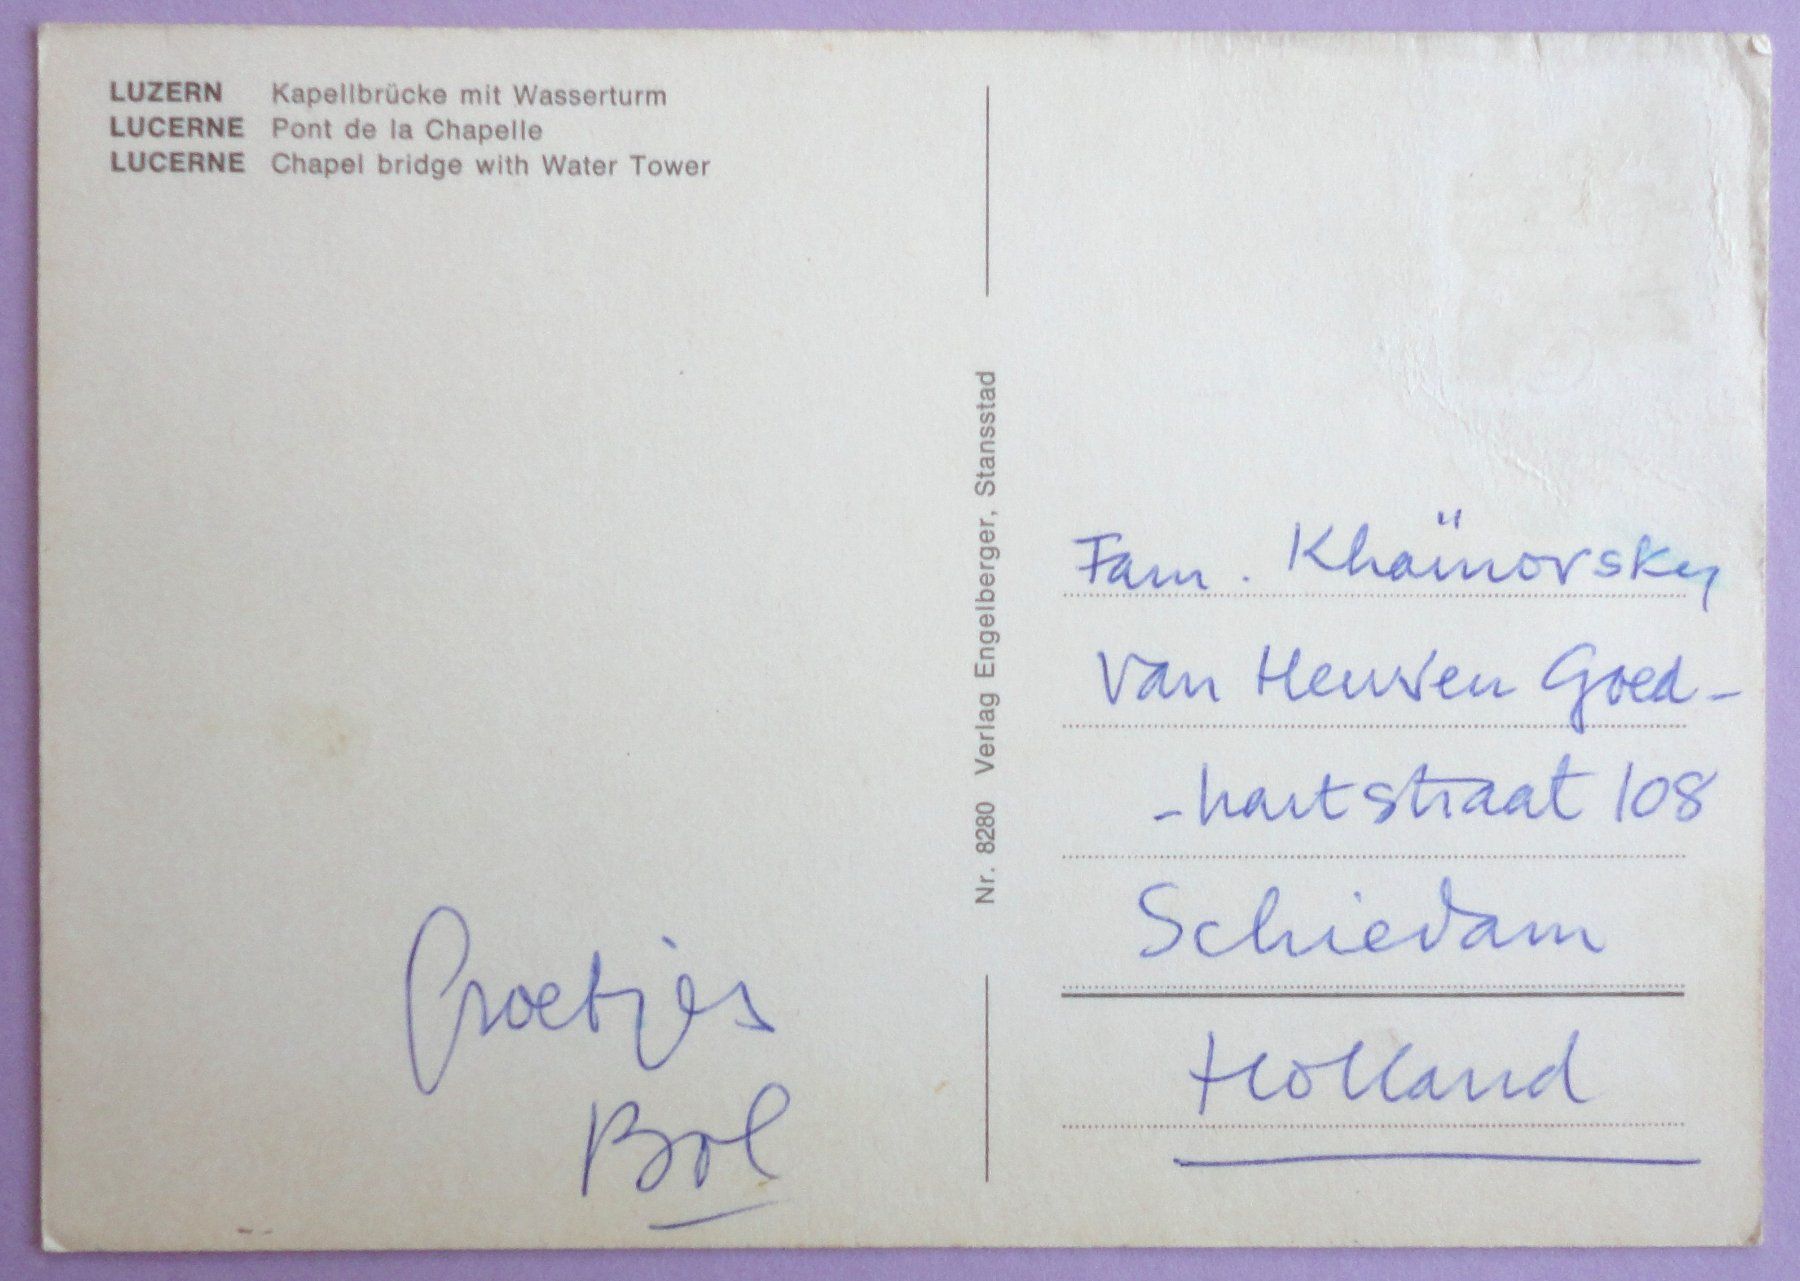 LUZERN Kapellbrücke mit Wasserturm
LUCERNE Pont de la Chapelle
LUCERNE Chapel bridge with Water Tower
Groetjes
Bol
Nr. 8280 Verlag Engelberger, Stansstad
Fam. Khäinovsky
Van Heusen Goed-
-hartstraat 108
Schiedam
Holland